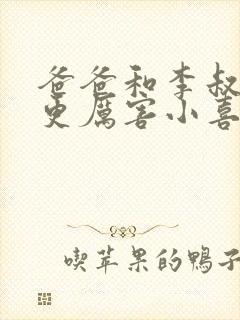 爸爸和李叔
更厲害小喜
喫苹果的鴨子